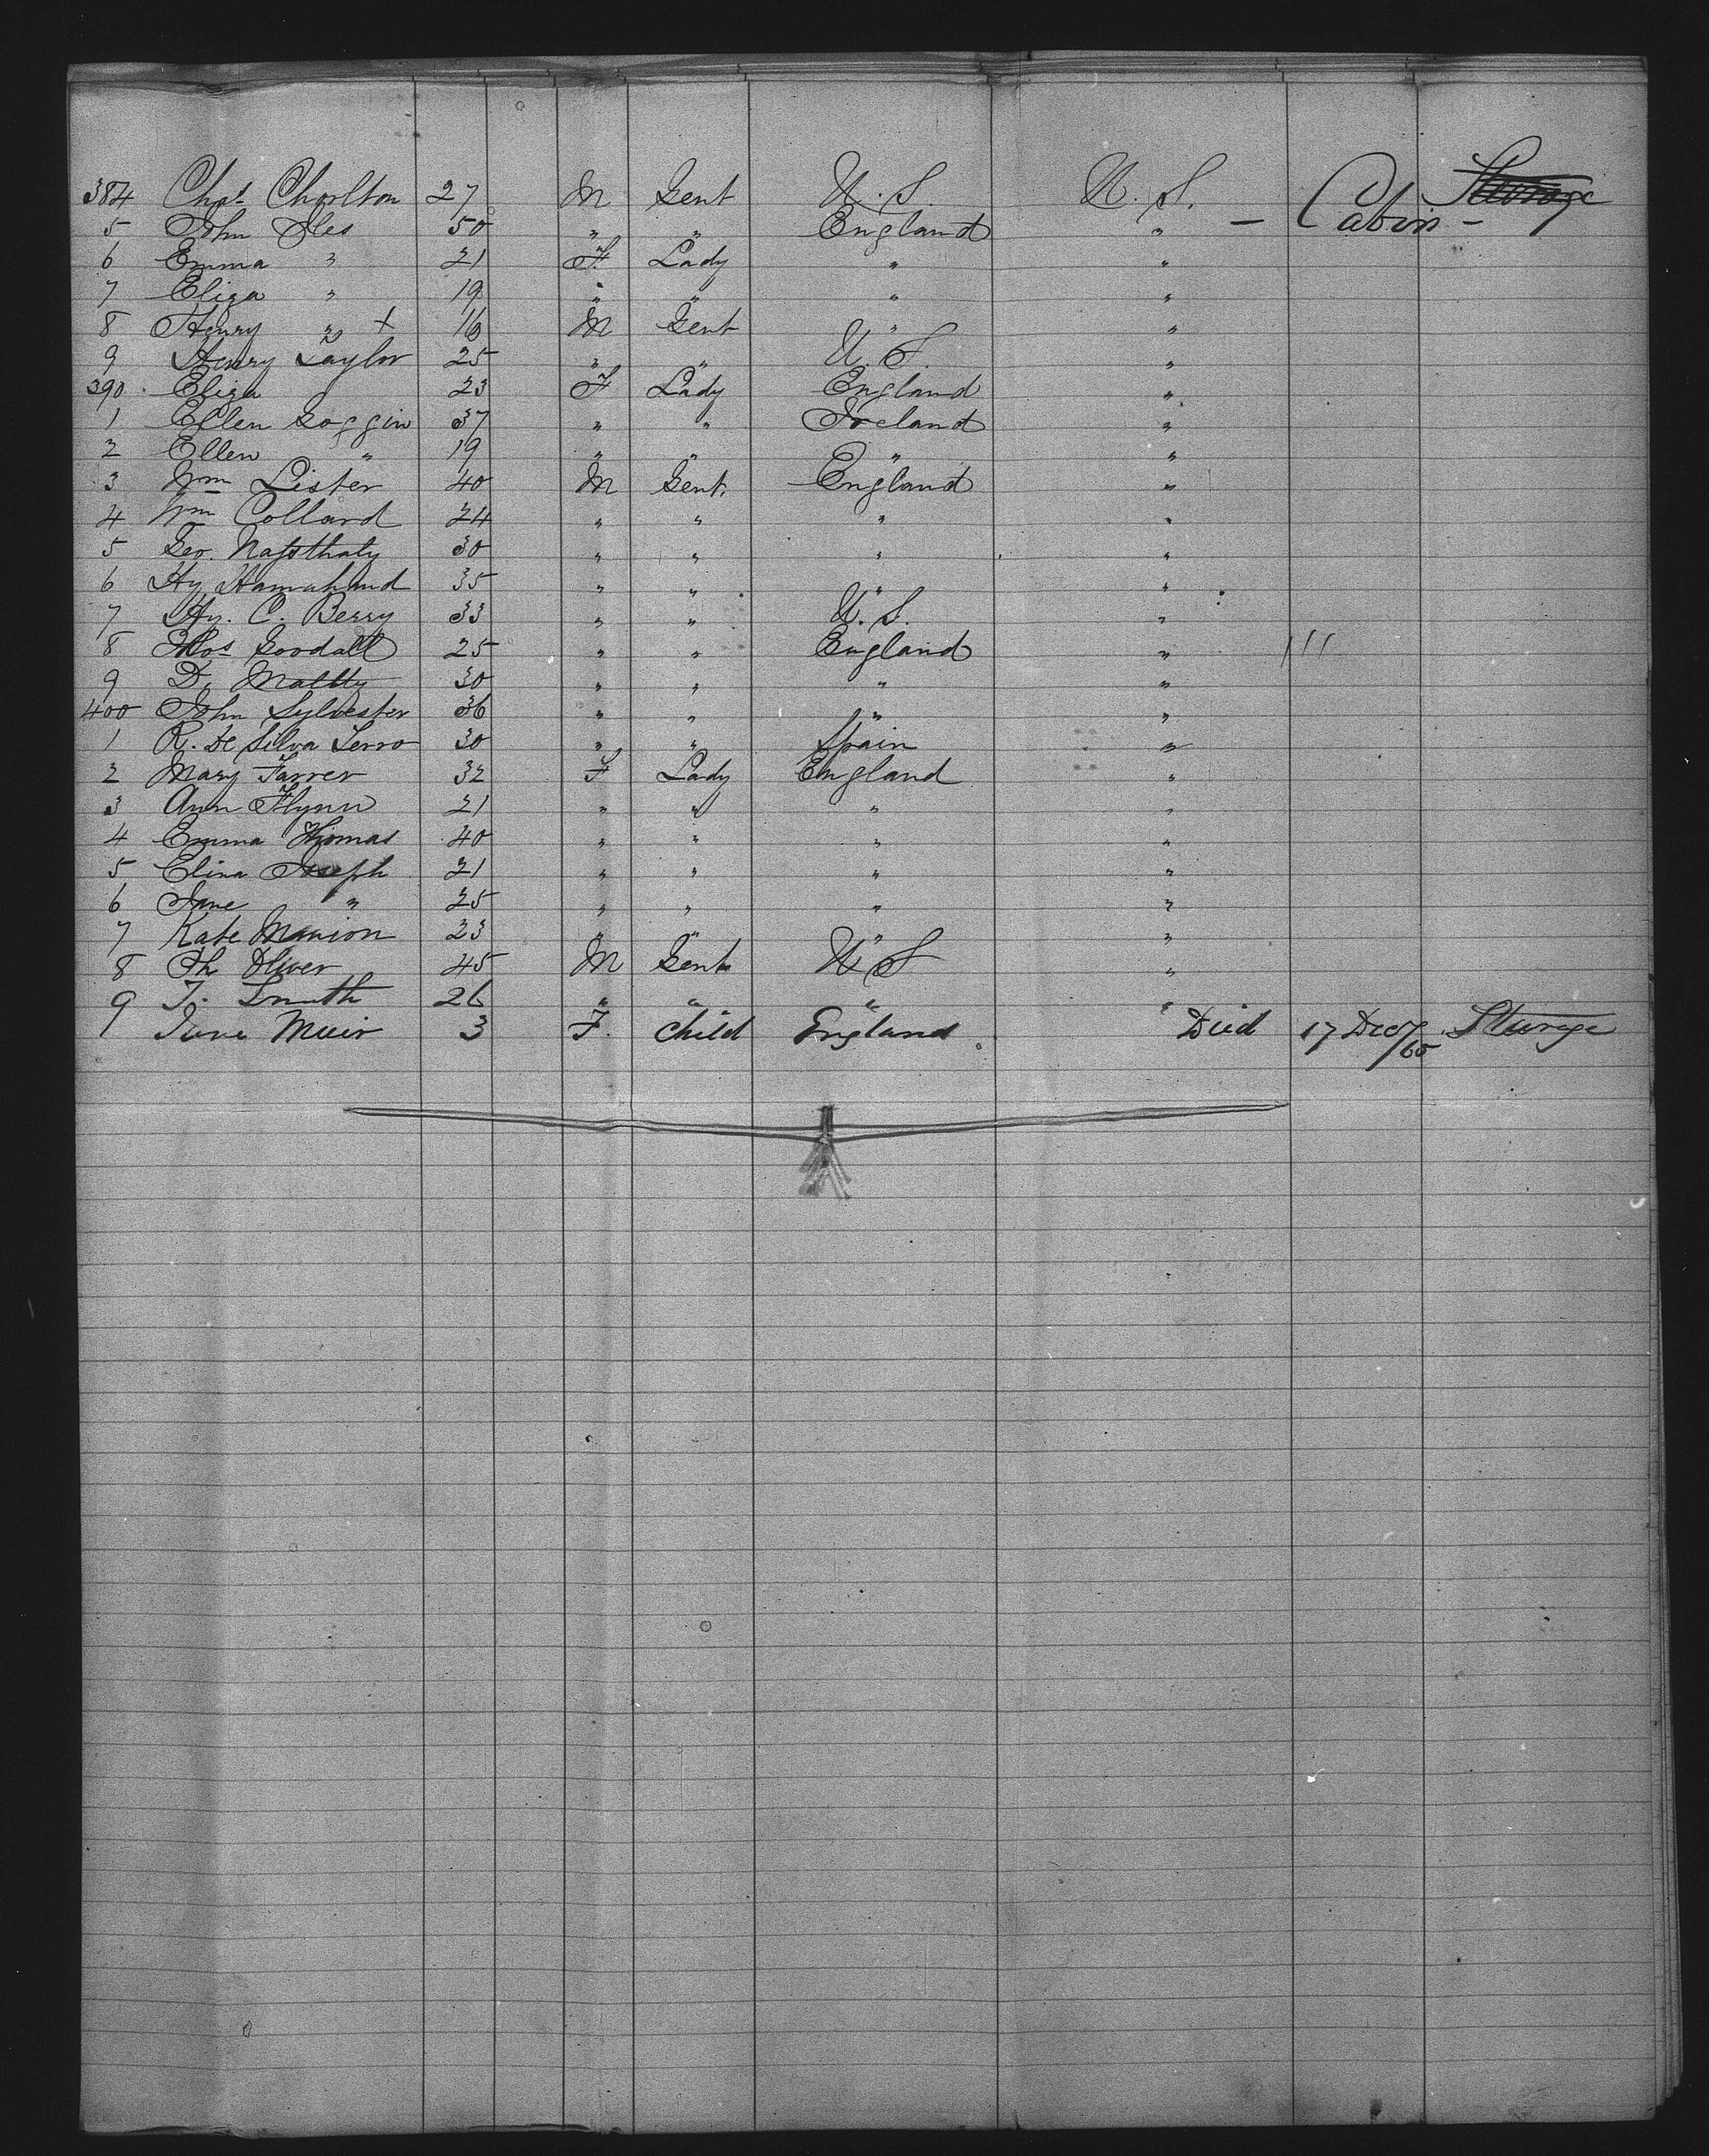 384 Chas Chorlton 27 M Gent U.S. U.S. — Cabin — Steerage
5 John Iles 50 " " England "
6 Emma " 21 F Lady " "
7 Eliza " 19 " " " "
8 Henry " + 16 M Gent " "
9 Henry Taylor 25 " " U.S. "
390 Eliza " 23 F Lady England "
1 Ellen Goggin 37 " " Ireland "
2 Ellen " 19 " " " "
3 Wm Lister 40 M Gent. England "
4 Wm Collard 24 " " " "
5 Geo. 30 " " " "
6 Hy 35 " " " "
7 Hy. C. Berry 33 " " U.S. "
8 Thos Goodall 25 " " England " ///
9 D. Maltby 30 " " " "
400 John Sylvester 36 " " " "
1 R. De Silva 30 " " Spain "
2 Mary Farrer 32 F Lady England "
3 Ann Flynn 21 " " " "
4 Emma Thomas 40 " " " "
5 Elina Joseph 21 " " " "
6 Jane " 25 " " " "
7 Kate Manion 23 " " " "
8 Th Oliver 45 M Gent U.S "
9 T. Smith 26 " " " "
Jane Muir 3 F. Child England Died 17 Dec/65 Steerage